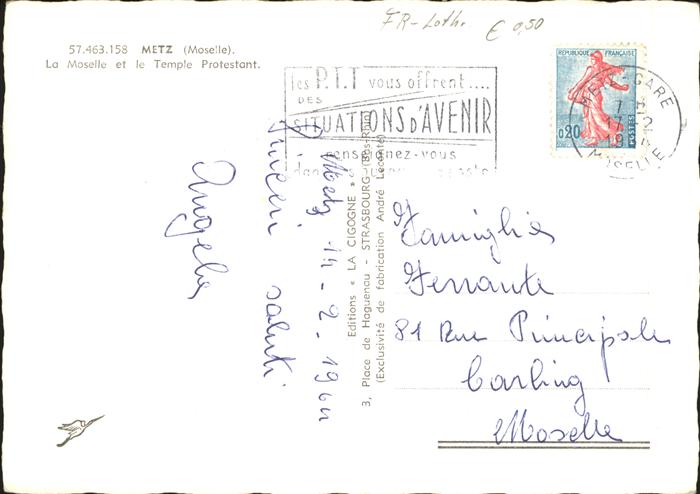 FR-Loth. € 0,50
57.463.158 METZ (Moselle).
La Moselle et le Temple Protestant.
les P.T.T vous offrent....
DES
SITUATIONS D'AVENIR
renseignez-vous
REPUBLIQUE FRANÇAISE
0,20
POSTES
METZ-GARE
MOSELLE
Metz 14-2-1961
Sinceri saluti
Angela
Editions « LA CIGOGNE »
3, Place de Haguenau - STRASBOURG (Bas-Rhin)
(Exclusivité de fabrication André Leconte)
Famiglia
Ferrante
81 Rue Principale
Carling
Moselle